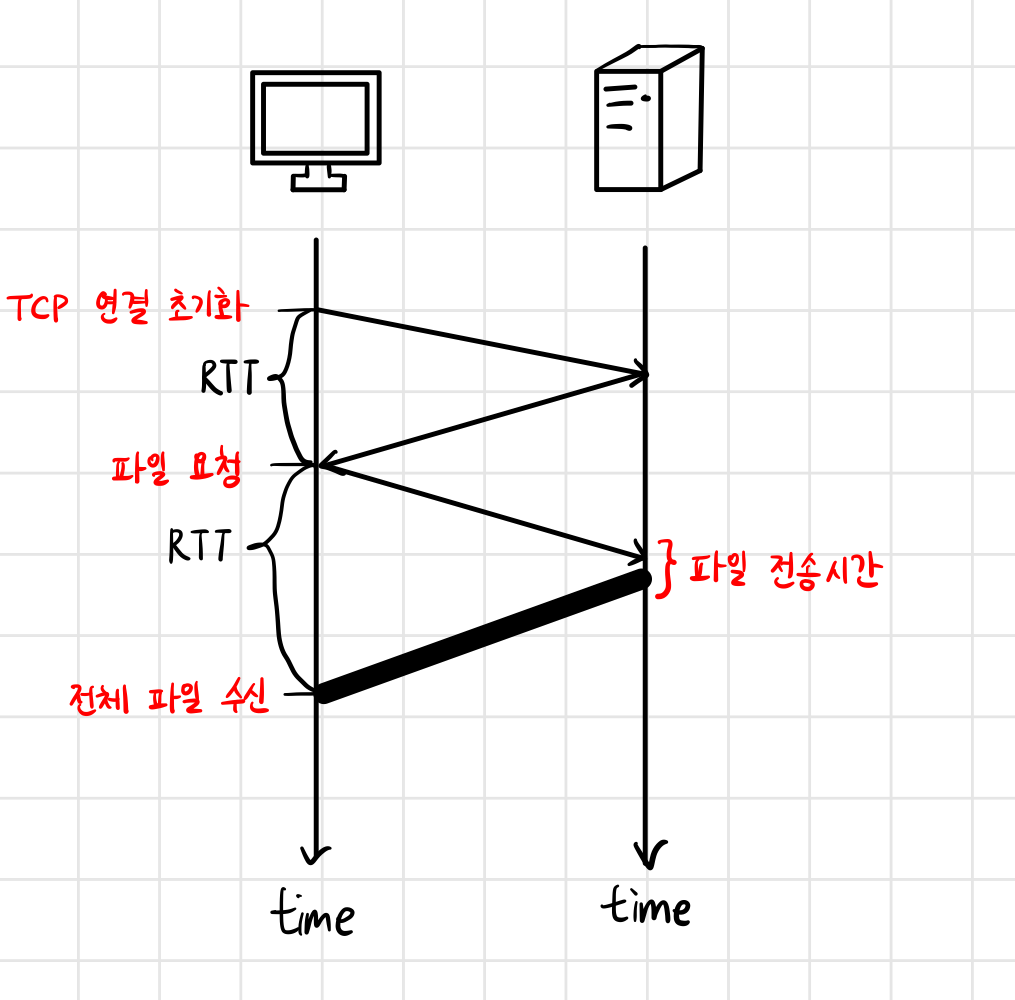 TCP 연결 초기화
RTT
파일 요청
RTT
파일 전송시간
전체 파일 수신
time
time